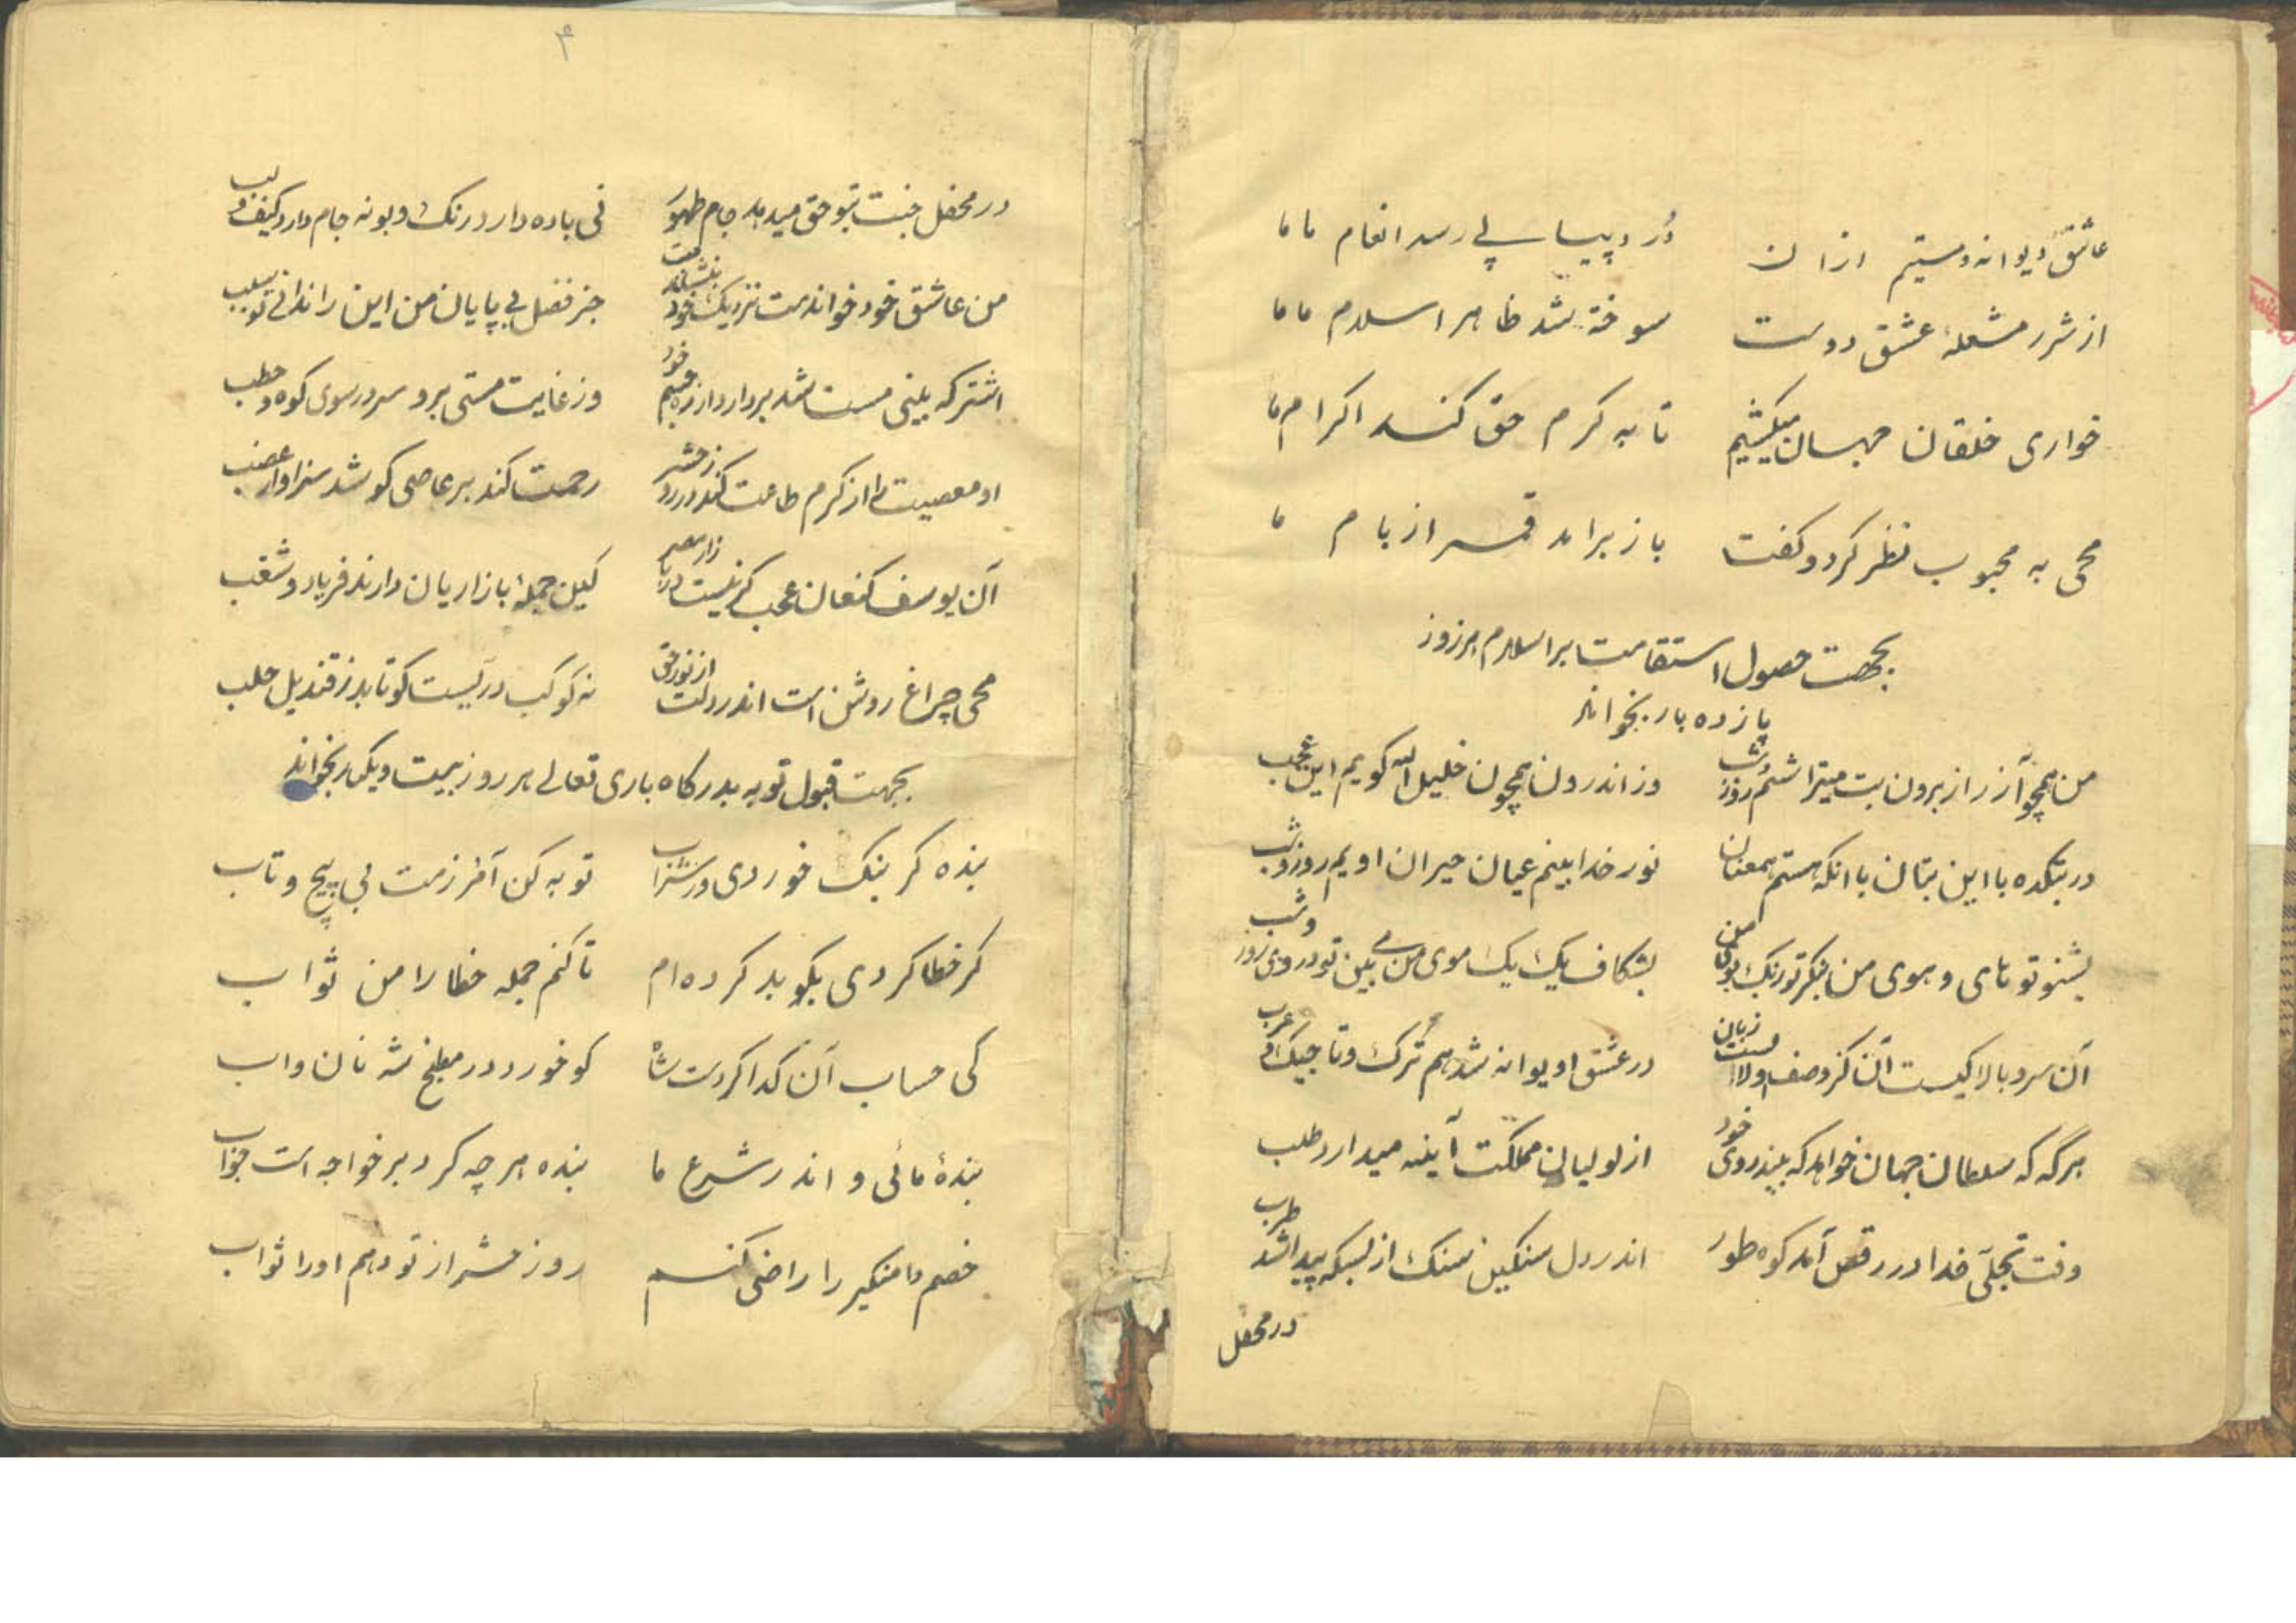 عاشق دیوانه و مستیم ازان در و پیاپی رسد انعام ما ما
از شرر مشعلهٔ عشق دوست سوخته شد ظاهر اسلام ما ما
خواری خلقان جهان میکشیم تا به کرم حق کند اکرام ما
محی به محبوب نظر کرد و کفت باز برامد قمر از بام ما
بجهت حصول استقامت بر اسلام هر روز
یازده بار بخواند
من همچو آزر از برون بت میتراشم روز شب وز اندرون همچون خلیل الله کویم این عجب
در بتکده با این بتان با آنکه هستم همعنان نور خدا بینم عیان حیران اویم روز و شب
بشنو تو های و هوی من بنکر تو رنک بوی من بشکاف یک یک موی من می بین تو در وی روز و شب
آن سرو بالا کیست آن کز وصف او لالست زبان در عشق او دیوانه شد هم ترک و تاجیک و عرب
هرگه که سلطان جهان خواهد که بیند روی خود از لولیان مملکت آینه میدارد طلب
وقت تجلّی خدا در رقص آمد کوه طور اندر دل سنکین سنک از بسکه پیدا شد طرب
در محفل
۴
در محفل جنت بتو حق میدهد جام طهور نی باده دارد رنک و بو نه جام دارد کیف و لب
من عاشق خود خواندمت نزدیک خود بنشاندمت جز فضل بی پایان من این را ندانی تو سبب
اشتر که بینی مست شد بردارد از ره چشم خود وز غایت مستی برو سر در سوی کوه و حطب
او معصیت را از کرم طاعت کند در روز حشر رحمت کند بر عاصی کو شد سزاوار غضب
آن یوسف کنعان عجب کر نیست در بازار مصر کین جملهٔ بازاریان دارند فریاد و شغب
محی چراغ روشن است اندر دلت از نور حق نه کوکب دریست کو تابد ز قندیل حلب
بجهت قبول توبه بدرکاه باری تعالی هر روز بیست و یکبار بخواند
بنده کر بنک خوردی ور شراب توبه کن آمرزمت بی پیچ و تاب
کر خطا کردی بکو بد کرده ام تا کنم جمله خطا را من ثواب
کی حساب آن کدا کردست شاه کو خورد در مطبخ شه نان و اب
بندهٔ مائی و اندر شرع ما بنده هر چه کرد بر خواجه است جواب
خصم دامنکیر را راضی کنم روز حشر از تو دهم اورا ثواب